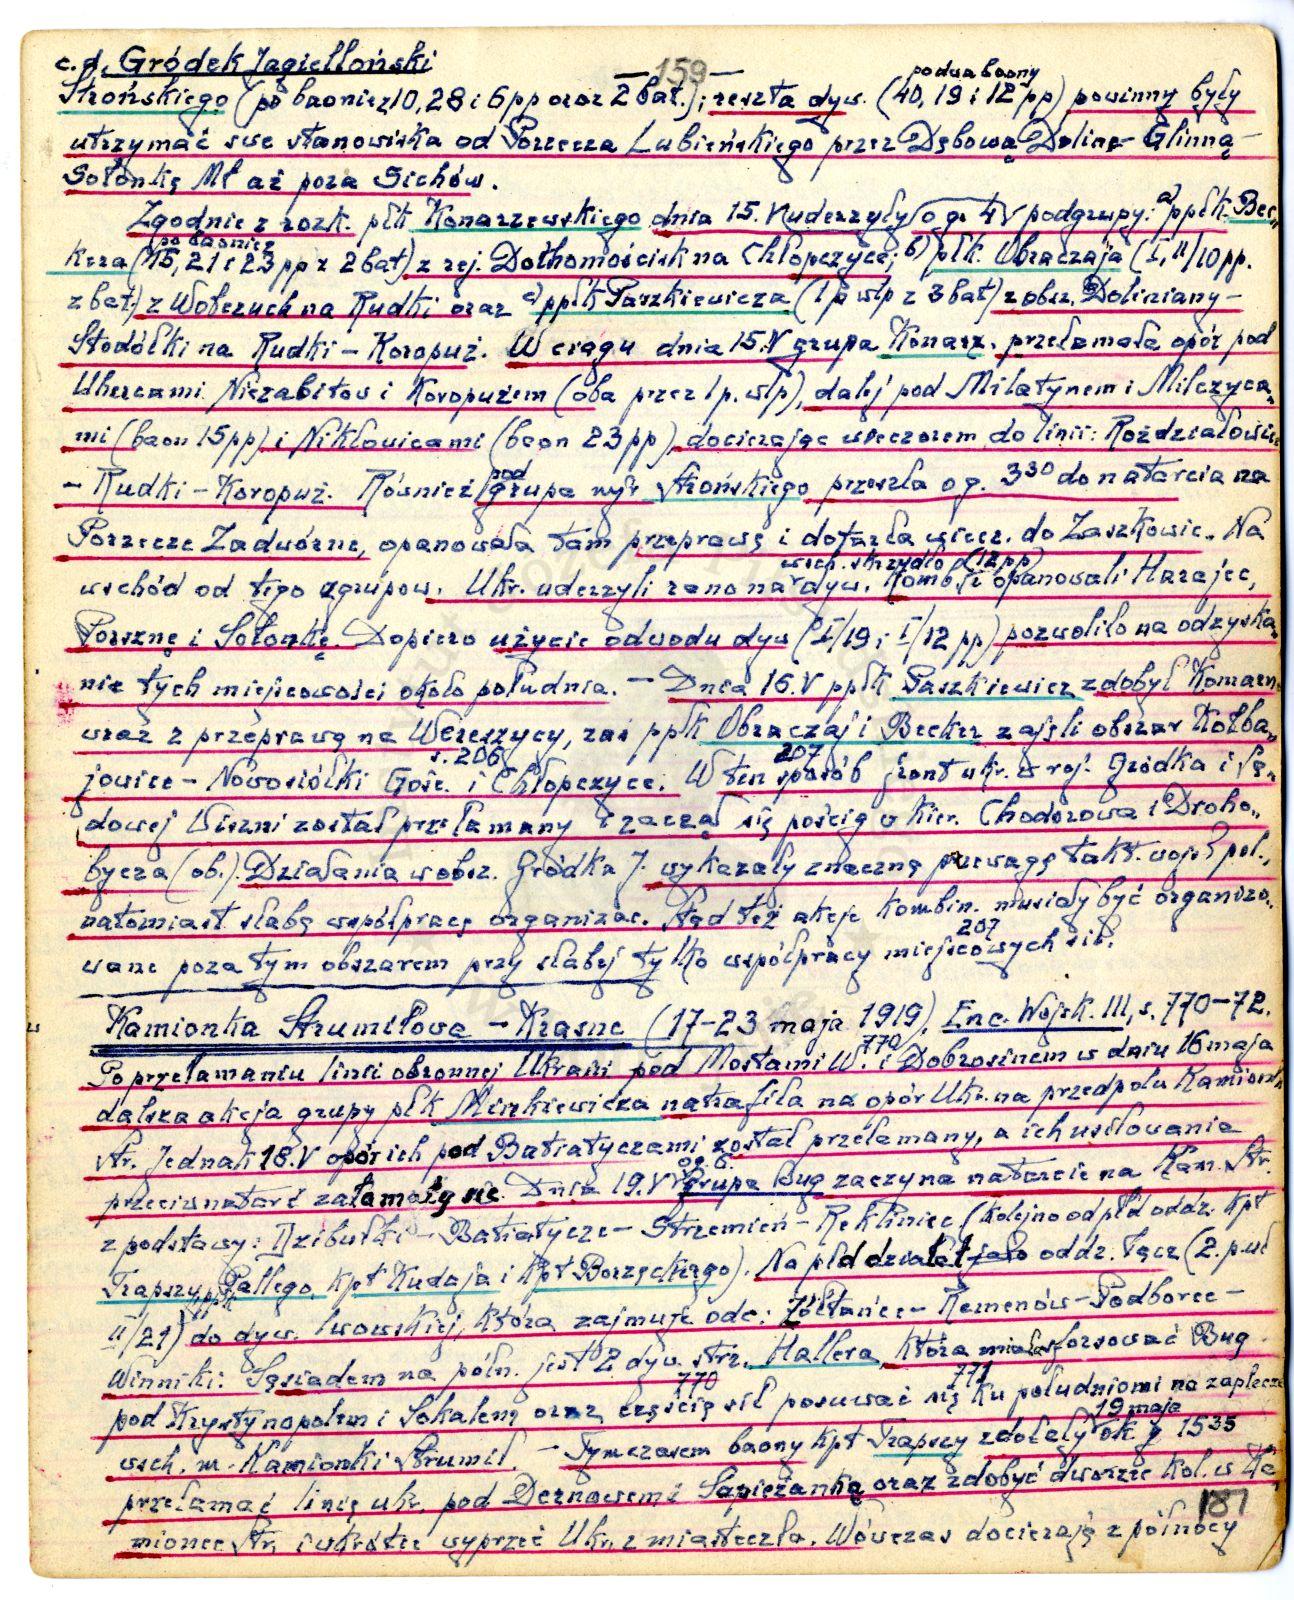 c.d. Gródek Jagielloński
— 159 —
Strońskiego (po baonie z 10, 28 i 6 pp oraz 2 bat.); reszta dyw. (po dwa baony 40, 19 i 12 pp) powinny były
utrzymać swe stanowiska od Porzecza Lubieńskiego przez Dębową Dolinę – Glinną –
Sołonkę Mł aż poza Sichów.
Zgodnie z rozk. płk Konarzewskiego dnia 15.V uderzyły o g. 4 podgrupy: a) ppłk. Bec-
kera (po baonie z 15, 21 i 23 pp z 2 bat) z rej. Dołhomościsk na Chłopczyce; b) płk. Obraczaja (I, II/10 pp.
z bat.) z Wołczuch na Rudki oraz c) ppłk Paszkiewicza (1 p. wlp z 3 bat) z obsz. Doliniany –
Stodółki na Rudki – Koropuż. W ciągu dnia 15.V grupa Konarz. przełamała opór pod
Uhercami Niezabitow i Koropużem (oba przez 1 p. wlp), dalej pod Milatynem i Milczyca-
mi (baon 15 pp) i Nikłowicami (baon 23 pp), docierając wieczorem do linii: Roździałowice
– Rudki – Koropuż. Również podgrupa mjr Strońskiego przeszła o g. 3³⁰ do natarcia na
Porzecze Zadwórne, opanowała tam przeprawę i dotarła wiecz. do Zaszkowic. Na
wschód od tego zgrupow. Ukr. uderzyli rano na wsch. skrzydło (12 pp) dyw. i opanowali Harajec,
Porsznę i Sołonkę. Dopiero użycie odwodu dyw (I/19 i I/12 pp) pozwoliło na odzyska-
nie tych miejscowości około południa. – Dnia 16.V ppłk Paszkiewicz zdobył Komarn
wraz z przeprawą na Wereszycy, zaś ppłk Obraczaj i Becker zajęli obszar Kołba-
jowice – Nowosiółki Gośc. i Chłopczyce. W ten sposób front ukr. w rej. Gródka i Są-
s. 206 207
dowej Wiszni został przełamany i zaczął się pościg w kier. Chodorowa i Droho-
bycza (ob.). Działania w obsz. Gródka J. wykazały znaczną przewagę takt. wojsk pol.,
natomiast słabą współpracę organizac. Stąd też akcje kombin. musiały być organizo-
wane poza tym obszarem przy słabej tylko współpracy miejscowych sił.
207
Kamionka Strumiłowa – Krasne (17–23 maja 1919). Enc. Wojsk. III, s. 770–72.
Po przełamaniu linii obronnej Ukraiń pod Mostami W. i Dobrosinem w dniu 16 maja
770
dalsza akcja grupy płk Minkiewicza natrafiła na opór Ukr. na przedpolu Kamionk
Str. Jednak 18.V opór ich pod Batiatyczami został przełamany, a ich usiłowania
przeciwnatarć załamały się. Dnia 19.V o g. 6. grupa Bug zaczyna natarcie na Kam. Str.
z podstawy: Dzibułki – Batiatycze – Strzemień – Rekliniec (kolejno od płd oddz. kpt
Trapszy, ppłk Pallego, kpt Kudaja i kpt Borzęckiego). Na płd działał oddz. łącz (2. p. uł
II/21) do dyw. lwowskiej, która zajmuje odc: Żółtańce – Remenów – Podborce –
Winniki. Sąsiadem na półn. jest 2 dyw. strz. Hallera, która miała sforsować Bug
pod Krystynopolem i Sokalem oraz częścią sił posuwać się ku południowi na zaplecze
770 771
wsch. m. Kamionki Strumił. – Tymczasem baony kpt Trapszy zdołały 19 maja ok. g. 15³⁵
przełamać linię ukr. pod Dernowem i Sapieżanką oraz zdobyć dworzec kol. w Ka-
mionce Str. i wkrótce wyprzeć Ukr. z miasteczka. Wówczas docierają z północy
187